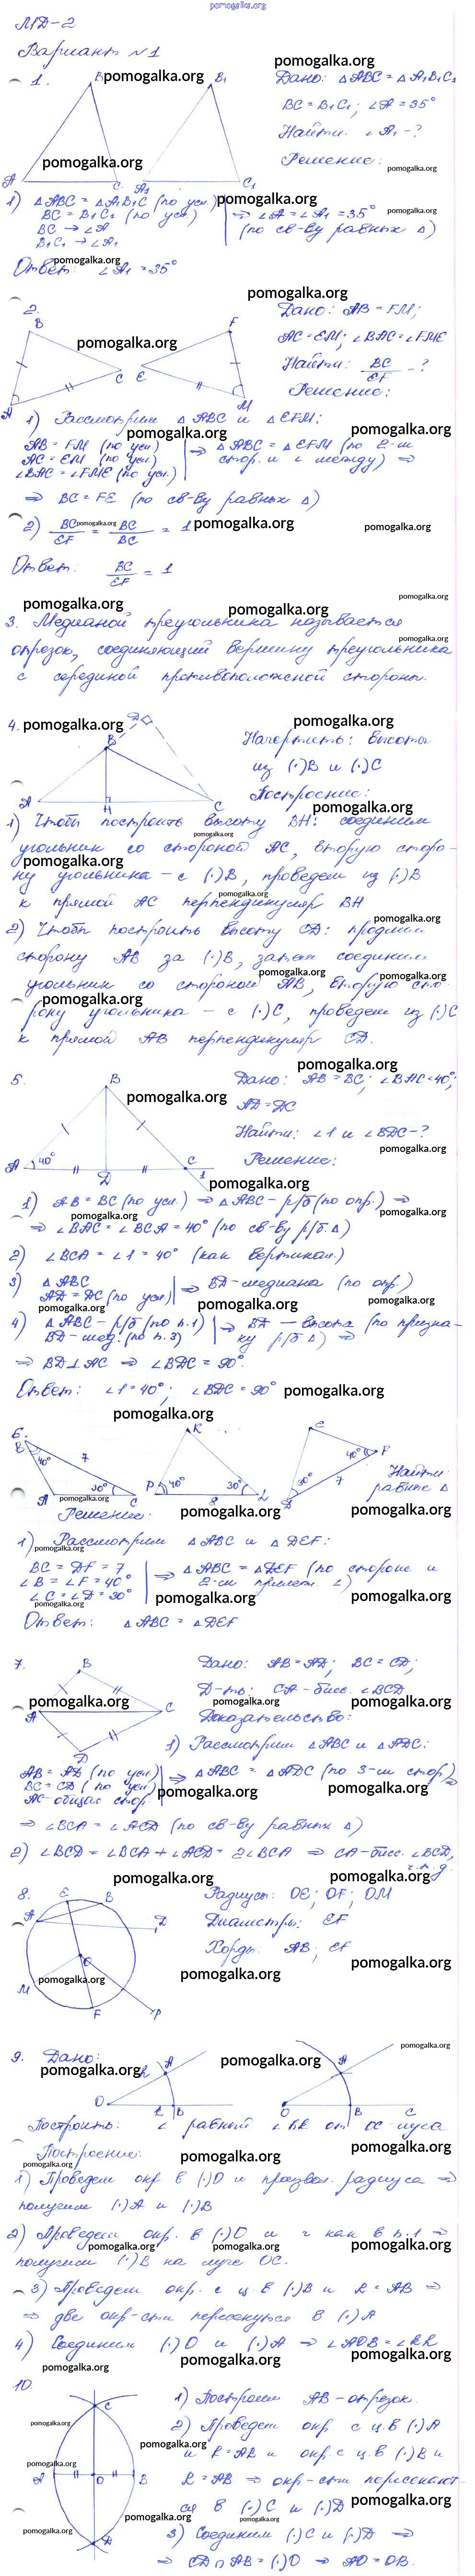 pomogalka.org
МД-2
Вариант №1
1. Дано: △ABC = △A₁B₁C₁
BC = B₁C₁; ∠A = 35°
Найти: ∠A₁ - ?
Решение:
1) △ABC = △A₁B₁C (по усл.)
BC = B₁C₁ (по усл)
BC → ∠A
B₁C₁ → ∠A₁
⇒ ∠A = ∠A₁ = 35°
(по св-ву равных △)
Ответ: ∠A₁ = 35°
2. Дано: AB = FM;
AC = EM; ∠BAC = ∠FME
Найти: BC/EF - ?
Решение:
1) Рассмотрим △ABC и △EFM:
AB = FM (по усл)
AC = EM (по усл)
∠BAC = ∠FME (по усл.)
⇒ △ABC = △EFM (по 2-м
стор. и ∠ между) ⇒
⇒ BC = FE (по св-ву равных △)
2) BC/EF = BC/BC = 1
Ответ: BC/EF = 1
3. Медианой треугольника называется
отрезок, соединяющий вершину треугольника
с серединой противоположной стороны.
4. Начертить: высоты
из (·)B и (·)C
Построение:
1) Чтобы построить высоту BH: соединим
угольник со стороной AC, вторую сторо-
ну угольника - с (·)B, проведем из (·)B
к прямой AC перпендикуляр BH
2) Чтобы построить высоту CD: продлим
сторону AB за (·)B, затем соединим
угольник со стороной AB, вторую сто-
рону угольника - с (·)C, проведем из (·)C
к прямой AB перпендикуляр CD.
5. Дано: AB = BC; ∠BAC = 40°;
AD = DC
Найти: ∠1 и ∠BDC - ?
Решение:
1) AB = BC (по усл.) ⇒ △ABC - р/б (по опр.) ⇒
⇒ ∠BAC = ∠BCA = 40° (по св-ву р/б △)
2) ∠BCA = ∠1 = 40° (как вертикал.)
3) △ABC
AD = DC (по усл)
⇒ BD - медиана (по опр.)
4) △ABC - р/б (по п.1)
BD - мед. (по п.3)
⇒ BD - высота (по призна-
ку р/б △) ⇒
⇒ BD ⊥ AC ⇒ ∠BDC = 90°.
Ответ: ∠1 = 40°; ∠BDC = 90°
6. Найти:
равные △
Решение:
1) Рассмотрим △ABC и △DEF:
BC = DF = 7
∠B = ∠F = 40°
∠C = ∠D = 30°
⇒ △ABC = △DEF (по стороне и
2-м прилеж. ∠)
Ответ: △ABC = △DEF
7. Дано: AB = AD; BC = CD;
Д-ть: CA - бисс. ∠BCD
Доказательство:
1) Рассмотрим △ABC и △ADC:
AB = AD (по усл)
BC = CD (по усл)
AC - общая стор.
⇒ △ABC = △ADC (по 3-м стор) ⇒
⇒ ∠BCA = ∠ACD (по св-ву равных △)
2) ∠BCD = ∠BCA + ∠ACD = 2∠BCA ⇒ CA - бисс. ∠BCD,
ч.т.д.
8. Радиусы: OE; OF; OM
Диаметры: EF
Хорды: AB; EF
9. Дано:
Построить: ∠ равный ∠hk от OC-луча
Построение:
1) Проведем окр. в (·)O и произвол. радиуса ⇒
получим (·)A и (·)B
2) Проведем окр. в (·)O и r как в п.1 ⇒
получим (·)B на луче OC.
3) Проведем окр. с ц. в (·)B и R = AB ⇒
⇒ две окр-сти пересекутся в (·)A
4) Соединим (·)O и (·)A ⇒ ∠AOB = ∠hk
10. 1) Построим AB - отрезок.
2) Проведем окр. с ц. в (·)A
и R = AB и окр. с ц. в (·)B и
R = AB ⇒ окр-сти пересекают-
ся в (·)C и (·)D
3) Соединим (·)C и (·)D ⇒
⇒ CD ∩ AB = (·)O ⇒ AO = OB.